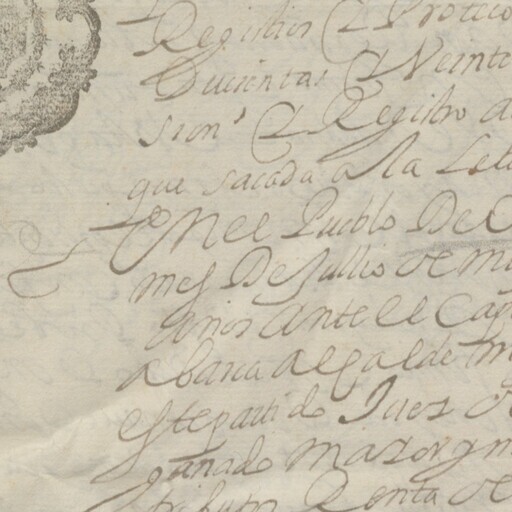 Registros Y Protoco
Ducientas Y Veinte
sion Y Registro d
que sacada a la Let
En el Pueblo De
mes De Jullio de mi
Años Ante el Cap
abarca Alcalde m
este partido Juez de
ganado mayor y m
tributo Renta de